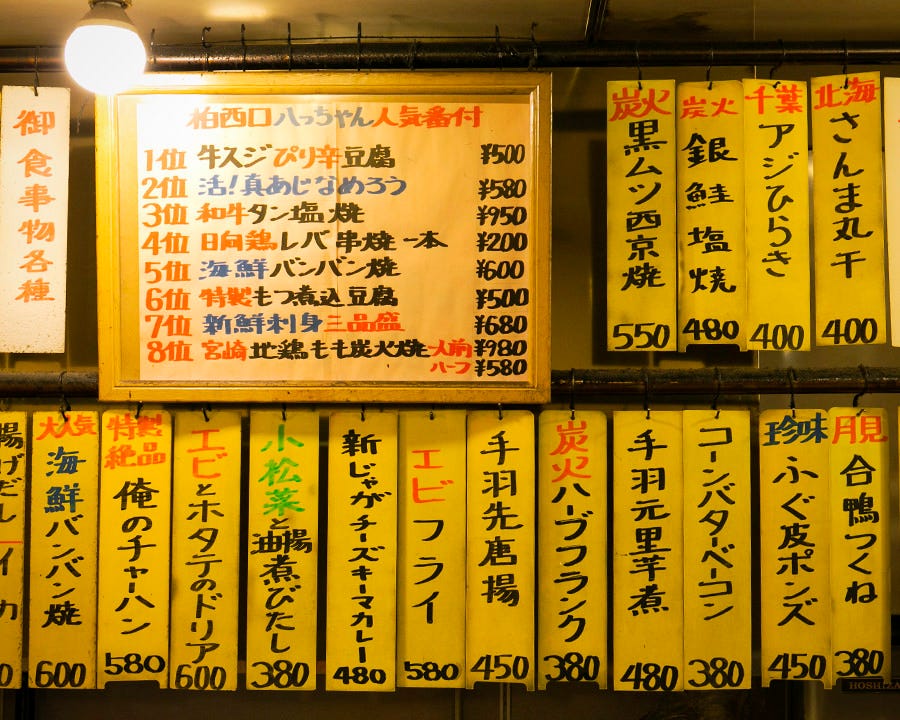 御食事物各種
柏西口八っちゃん人気番付
1位 牛スジぴり辛豆腐 ¥500
2位 活!真あじなめろう ¥580
3位 和牛タン塩焼 ¥950
4位 日向鶏レバ串焼一本 ¥200
5位 海鮮バンバン焼 ¥600
6位 特製もつ煮込豆腐 ¥500
7位 新鮮刺身三品盛 ¥680
8位 宮崎地鶏もも炭火焼一人前 ¥980
ハーフ ¥580
炭火黒ムツ西京焼 550
炭火銀鮭塩焼 480
千葉アジひらき 400
北海さんま丸干 400
揚げだし
イカ
大人気海鮮バンバン焼 600
特製絶品俺のチャーハン 580
エビとホタテのドリア 600
小松菜と油揚煮びたし 380
新じゃがチーズキーマカレー 480
エビフライ 580
手羽先唐揚 450
炭火ハーブフランク 380
手羽元里芋煮 480
コーンバターベーコン 380
珍味ふぐ皮ポンズ 450
月見合鴨つくね 380
HOSHIZA